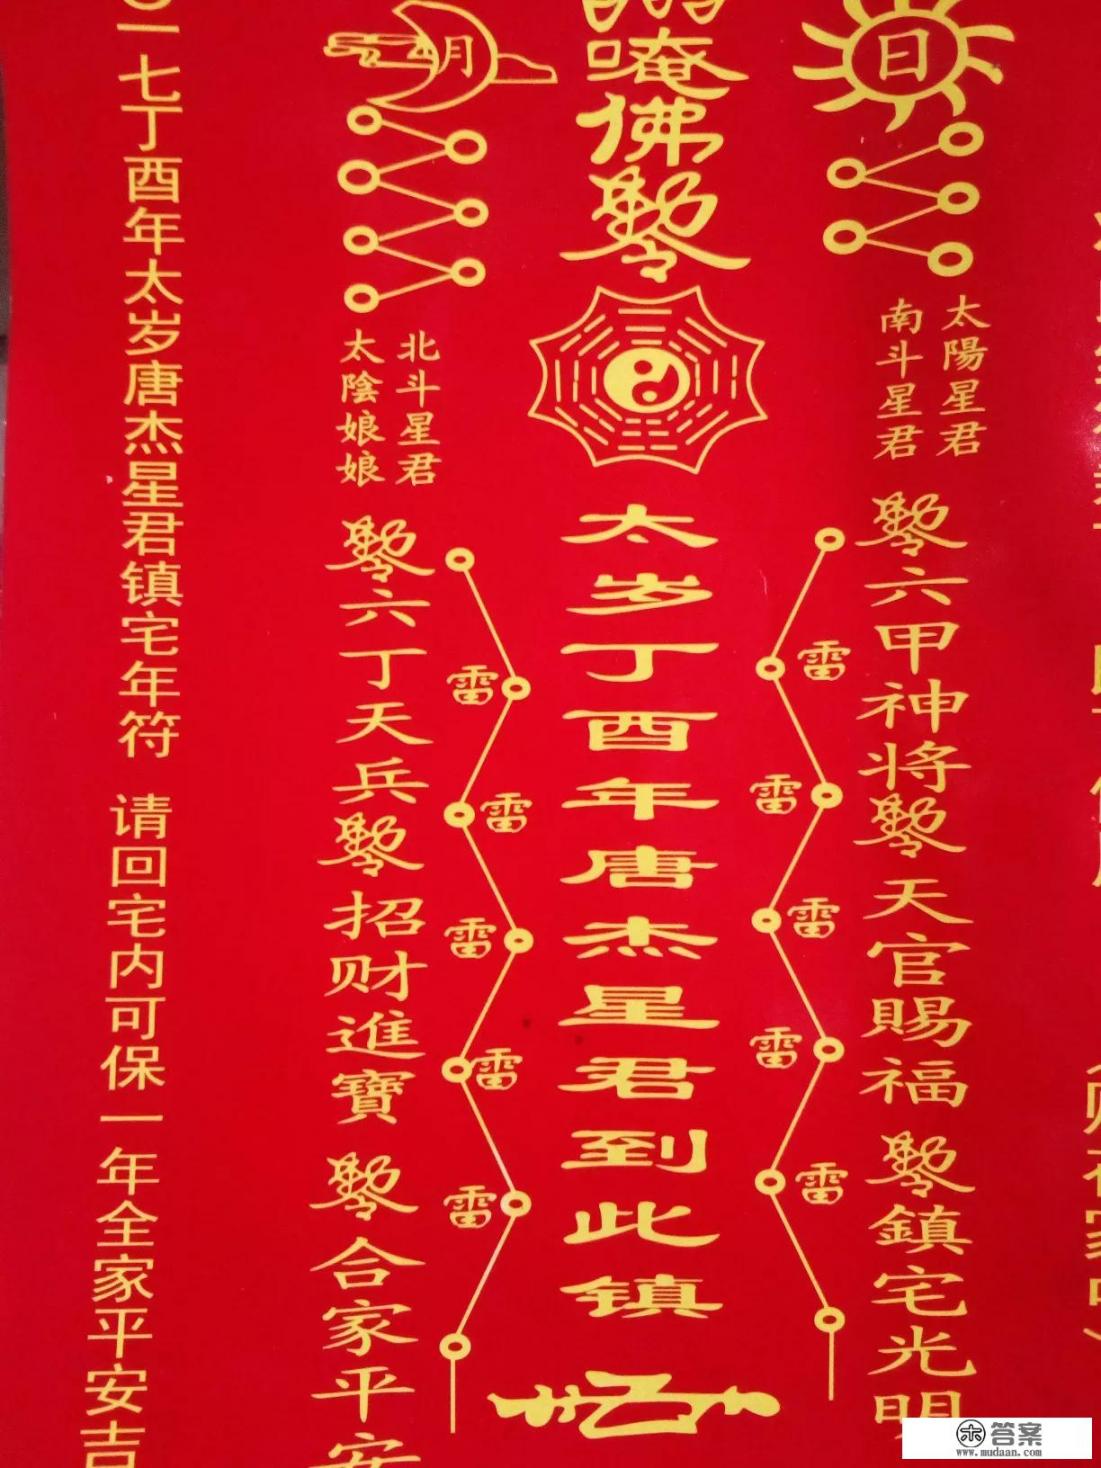 日
太陽星君
南斗星君
六甲神将
天官賜福
鎮宅光明
雷
雷
雷
雷
雷
唵佛
太岁丁酉年唐杰星君到此镇
月
北斗星君
太陰娘娘
雷
雷
雷
雷
雷
六丁天兵
招财進寶
合家平安
一七丁酉年太岁唐杰星君镇宅年符 请回宅内可保一年全家平安吉
答案
www.mudaan.com